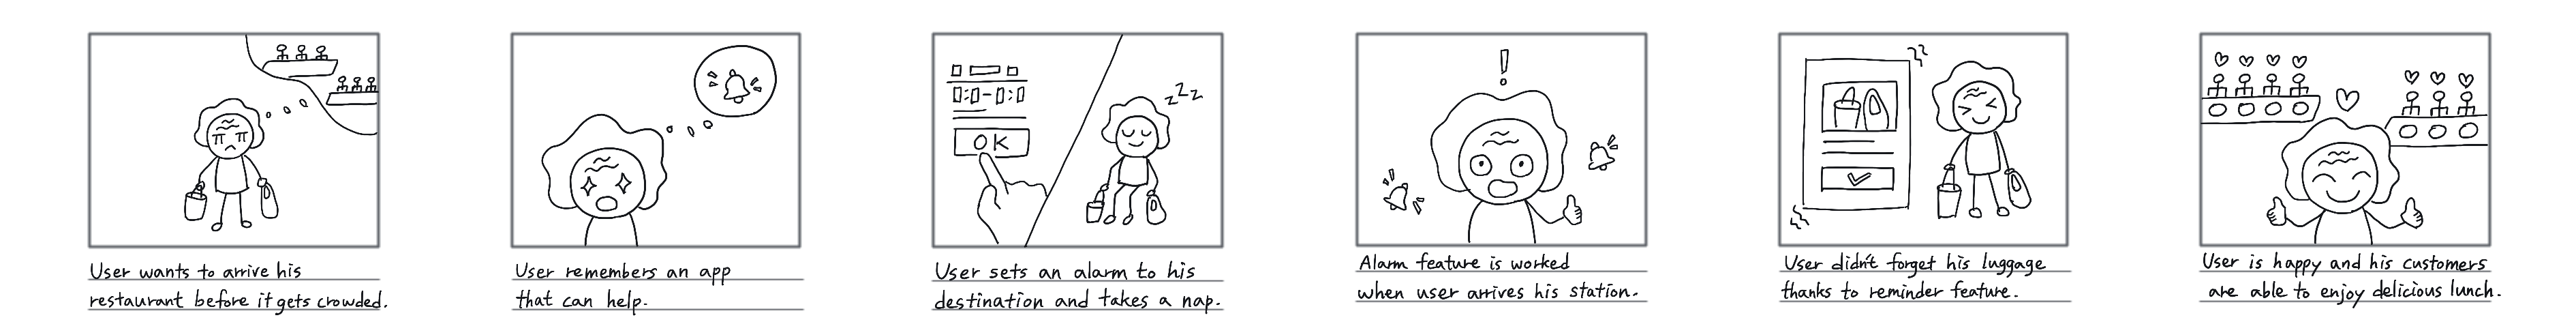 User wants to arrive his
restaurant before it gets crowded.
User remembers an app
that can help.
0:0-0:0
OK
zzz
User sets an alarm to his
destination and takes a nap.
!
Alarm feature is worked
when user arrives his station.
User didn't forget his luggage
thanks to reminder feature.
User is happy and his customers
are able to enjoy delicious lunch.